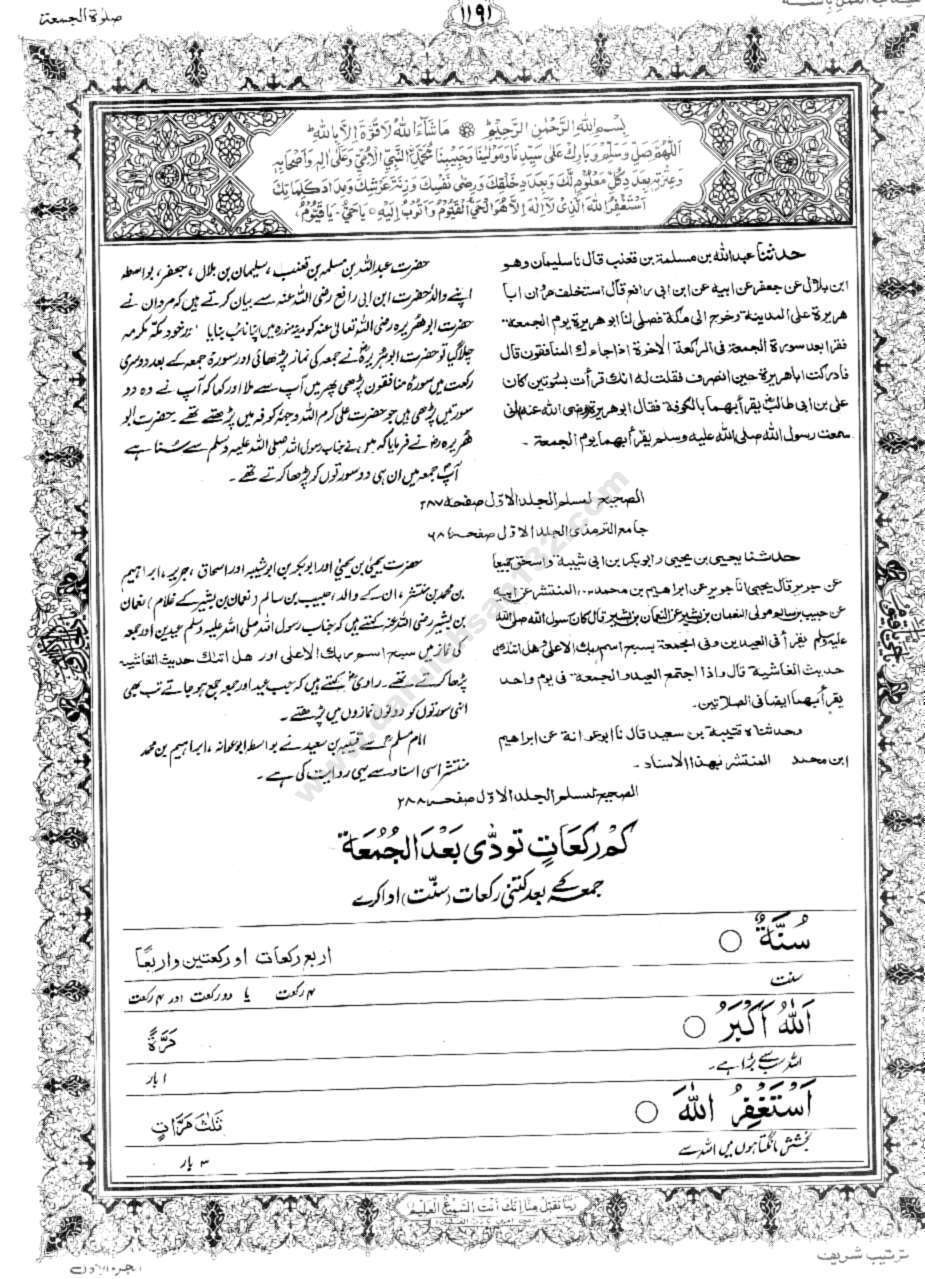 صلوٰة الجمعة
١١٩١
بِسْمِ اللهِ الرَّحْمٰنِ الرَّحِيْمِ مَاشَآءَ اللهُ لَا قُوَّةَ اِلَّا بِاللهِ
اَللّٰهُمَّ صَلِّ وَسَلِّمْ وَبَارِكْ عَلٰى سَيِّدِنَا وَمَوْلَيْنَا وَحَبِيْبِنَا مُحَمَّدِ النَّبِيِّ الْاُمِّيِّ وَعَلٰى اٰلِهٖ وَاَصْحَابِهٖ
وَعِتْرَتِهٖ بِعَدَدِ كُلِّ مَعْلُوْمٍ لَّكَ وَبِعَدَدِ خَلْقِكَ وَرِضٰى نَفْسِكَ وَزِنَةَ عَرْشِكَ وَمِدَادَ كَلِمَاتِكَ
اَسْتَغْفِرُ اللهَ الَّذِىْ لَآ اِلٰهَ اِلَّا هُوَ الْحَيُّ الْقَيُّوْمُ وَاَتُوْبُ اِلَيْهِ يَا حَيُّ يَا قَيُّوْمُ
حدثنا عبدالله بن مسلمة بن قعنب قال نا سليمان وهو
ابن بلال عن جعفر عن ابيه عن ابن ابى رافع قال استخلف مروان ابا
هريرة على المدينة وخرج الى مكة فصلى لنا ابو هريرة يوم الجمعة
فقرأ بعد سورة الجمعة فى الركعة الاخرة اذا جاءك المنافقون قال
فادركت اباهريرة حين انصرف فقلت له انك قرأت بسورتين كان
على بن ابى طالب يقرأ بهما بالكوفة فقال ابو هريرة رضى الله عنه انى
سمعت رسول الله صلى الله عليه وسلم يقرأ بهما يوم الجمعة ۔
حضرت عبداللہ بن مسلمہ بن قعنب، سلیمان بن بلال، جعفر، بواسطہ
اپنے والد حضرت ابن ابی رافع رضی اللہ عنہ سے بیان کرتے ہیں کہ مروان نے
حضرت ابوہریرہ رضی اللہ تعالیٰ عنہ کو مدینہ منورہ میں اپنا نائب بنایا اور خود مکہ مکرمہ
چلا گیا تو حضرت ابوہریرہؓ نے جمعہ کی نماز پڑھائی اور سورة جمعہ کے بعد دوسری
رکعت میں سورة منافقون پڑھی پھر میں آپ سے ملا اور کہا کہ آپ نے وہ دو
سورتیں پڑھی ہیں جو حضرت علی کرم اللہ وجہہ کوفہ میں پڑھتے تھے ۔ حضرت ابو
ہریرہ رضؓ نے فرمایا کہ میں نے جناب رسول اللہ صلی اللہ علیہ وسلم سے سُنا ہے
آپ جمعہ میں ان ہی دو سورتوں کو پڑھا کرتے تھے ۔
الصحیح لمسلم الجلد الاوّل صفحہ ٢٨٧
جامع الترمذی الجلد الاوّل صفحہ ٦٨
حدثنا يحيى بن يحيى وابو بكر بن ابى شيبة واسحق جميعا
عن جرير قال يحيى انا جرير عن ابراهيم بن محمد بن المنتشر عن ابيه
عن حبيب بن سالم مولى النعمان بن بشير عن النعمان بن بشير قال كان رسول الله صلى الله
عليه وسلم يقرأ فى العيدين وفى الجمعة بسبح اسم ربك الاعلى وهل اتك
حديث الغاشية قال واذا اجتمع العيد والجمعة فى يوم واحد
يقرأ بهما ايضا فى الصلاتين.
وحدثناه قتيبة بن سعيد قال نا ابو عوانة عن ابراهيم
ابن محمد المنتشر بهذا الاسناد ۔
حضرت یحییٰ بن یحییٰ اور ابوبکر بن ابوشیبہ اور اسحاق، جریر، ابراہیم
بن محمد بن منتشر، ان کے والد، حبیب بن سالم (نعمان بن بشیر کے غلام) نعمان
بن بشیر رضی اللہ عنہ کہتے ہیں کہ جناب رسول اللہ صلی اللہ علیہ وسلم عیدین اور جمعہ
کی نماز میں سبح اسم ربك الاعلى اور هل اتىك حديث الغاشية
پڑھا کرتے تھے ۔ راوی کہتے ہیں کہ جب عید اور جمعہ جمع ہو جاتے تب بھی
انہی سورتوں کو دونوں نمازوں میں پڑھتے ۔
امام مسلمؒ سے قتیبہ بن سعید نے بواسطہ ابوعوانہ، ابراہیم بن محمد
منتشر اسی اسناد سے یہی روایت کی ہے ۔
الصحیح لمسلم الجلد الاوّل صفحہ ٢٨٨
كَمْ رَكَعَاتٍ تُودّٰى بَعْدَ الْجُمُعَةِ
جمعہ کے بعد کتنی رکعات (سنّت) ادا کرے
سُنَّةٌ ○ اربع رکعات او رکعتین واربعًا
سنت ۴ رکعت یا دو رکعت اور ۴ رکعت
اَللّٰهُ اَكْبَرُ ○ مَرَّةً
اللہ سب سے بڑا ہے۔ ۱ بار
اَسْتَغْفِرُ اللهَ ○ ثَلٰثَ مَرَّاتٍ
بخشش مانگتا ہوں میں اللہ سے ۳ بار
ربنا تقبل منا انك انت السميع العليم
ترتیب شریف
الجزء الاول